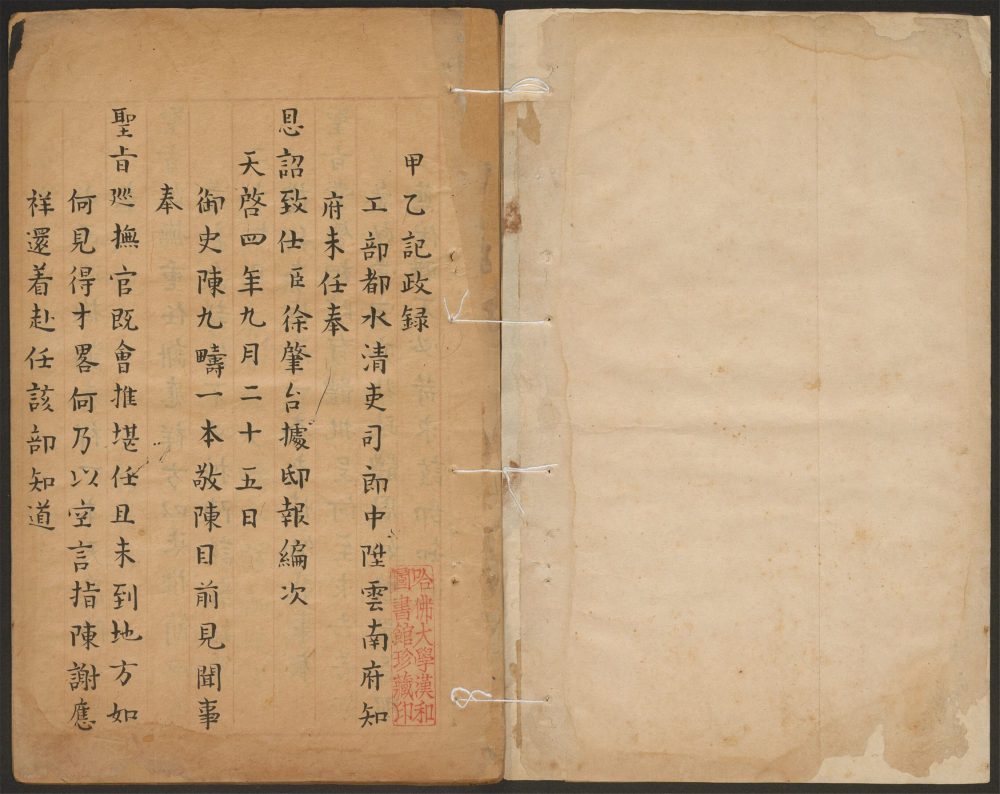 甲乙記政録
工部都水清吏司郎中陞雲南府知
府未任奉
恩詔致仕臣徐肇台據邸報編次
天啓四年九月二十五日
御史陳九疇一本敬陳目前見聞事
奉
聖旨巡撫官既會推堪任且未到地方如
何見得才畧何乃以空言指陳謝應
祥還着赴任該部知道
哈佛大學漢和
圖書館珍藏印